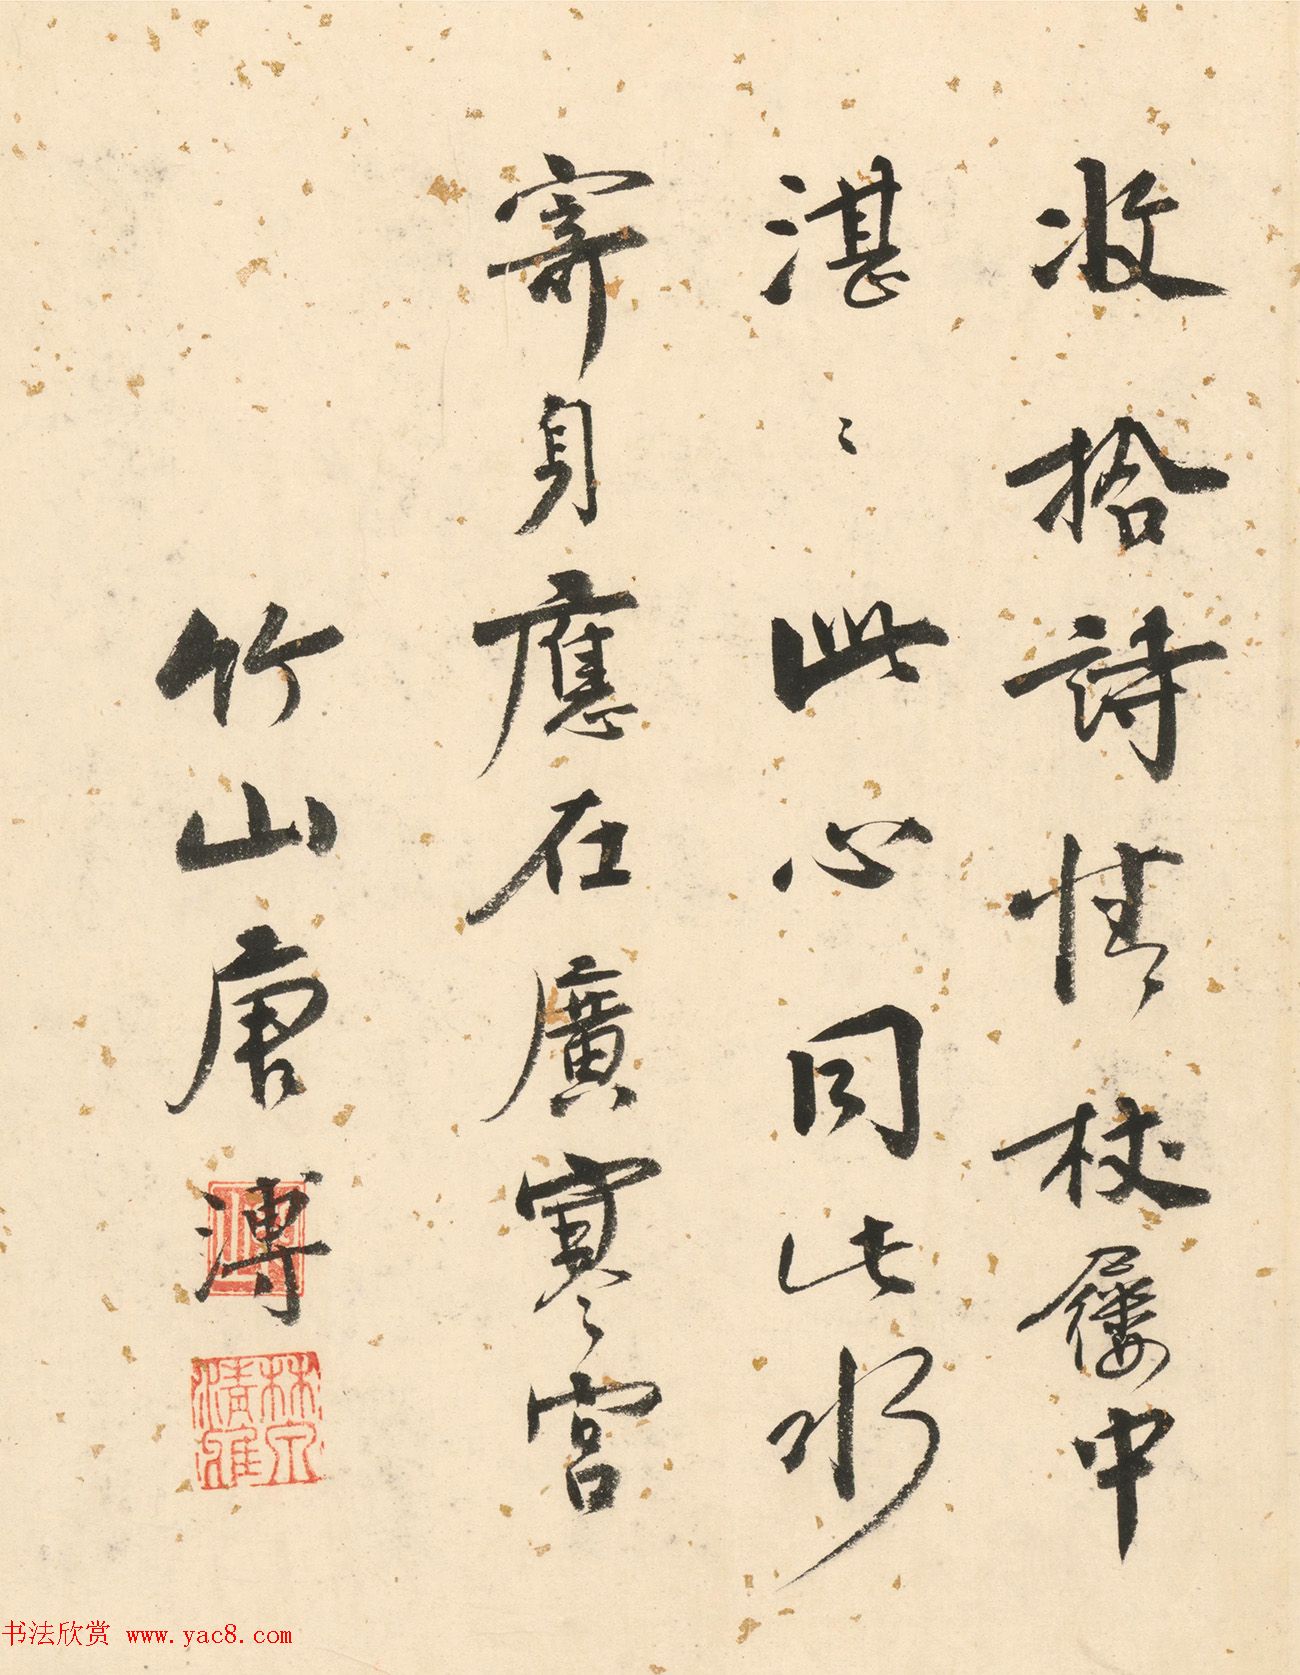 收拾詩情杖屨中
湛〻此心同此水
寄身應在廣寒宮
竹山唐溥
林泉
清雅
书法欣赏 www.yac8.com